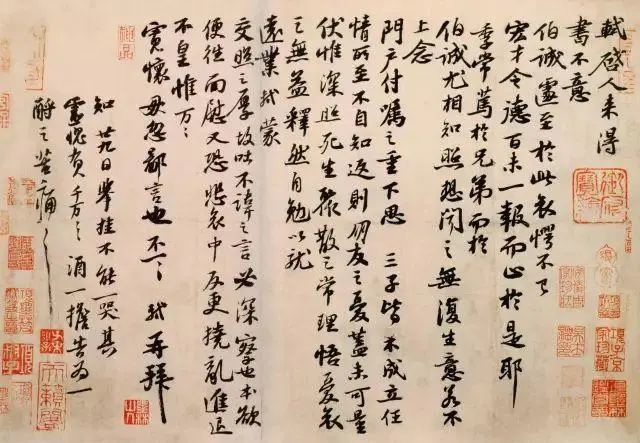 軾啓人來得
書不意
伯誠遽至於此哀愕不已
宏才令德百未一報而止於是耶
季常篤於兄弟而於
伯誠尤相知照想聞之無復生意若不
上念
門戶付囑之重下思三子皆未成立任
情所至不自知返則朋友之憂蓋未可量
伏惟深照死生聚散之常理悟憂哀
之無益釋然自勉以就
遠業軾蒙
交照之厚故吐不諱之言必深察也本欲
便往面慰又恐悲哀中反更撓亂進退
不皇惟萬萬
寬懷毋忽鄙言也不一一軾再拜
知廿九日舉掛不能一哭其
靈愧負千万千万酒一擔告為一
酹之苦痛苦痛